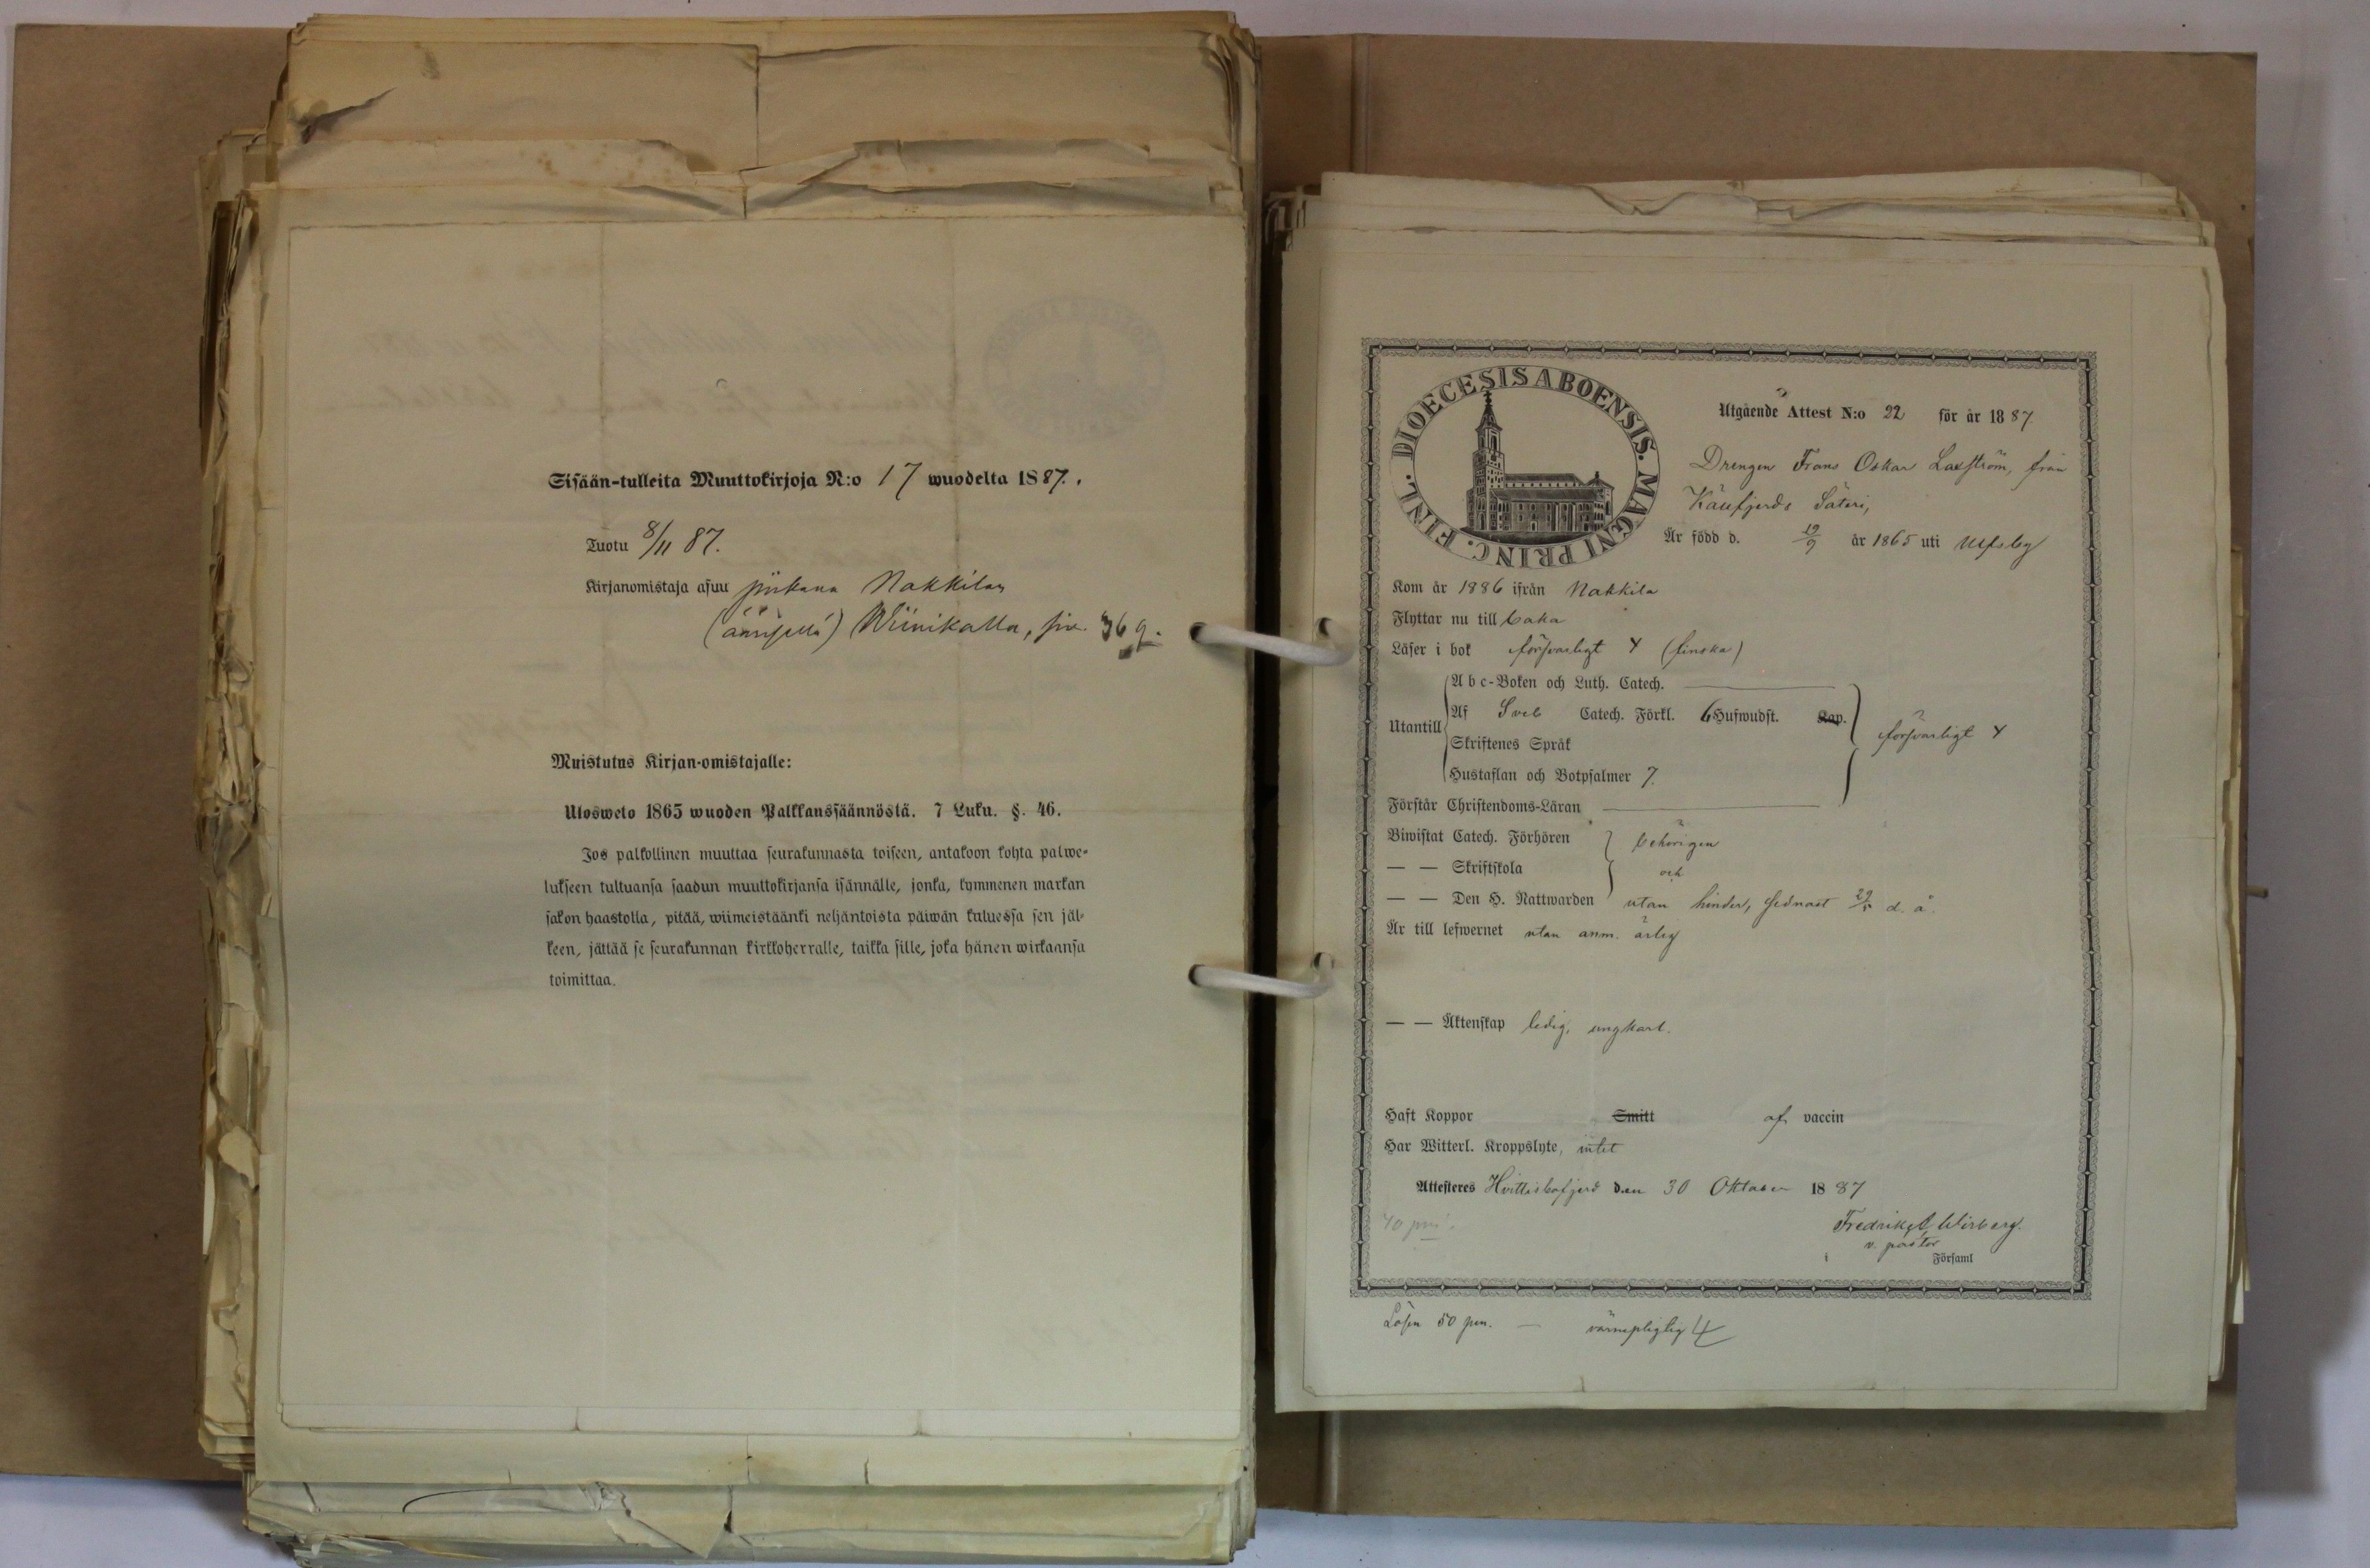 Sisään-tulleita Muuttokirjoja N:o 17 wuodelta 1887.
Tuotu 8/11 87.
Kirjanomistaja asuu piikana Nakkilan
Wiinikalla, siv. 369.
Muistutus Kirjan-omistajalle:
Ulosweto 1865 wuoden Palkkanssäännöstä. 7 Luku. §. 46.
Jos palkollinen muuttaa seurakunnasta toiseen, antakoon kohta palwe-
lukseen tultuansa saadun muuttokirjansa isännälle, jonka, kymmenen markan
sakon haastolla, pitää, wiimeistäänki neljäntoista päiwän kuluessa sen jäl-
keen, jättää se seurakunnan kirkkoherralle, taikka sille, joka hänen wirkaansa
toimittaa.
DIOECESIS ABOENSIS. MAGNI PRINC. FINL.
Utgående Attest N:o 22 för år 1887
Drengen Frans Oskar Laxström, från
Säteri,
Är född d. 19/9 år 1865 uti Ulfsby
Kom år 1886 ifrån Nakkila
Flyttar nu till baka
Läser i bok försvarligt Y (finska)
Utantill
Abc-Boken och Luth. Catech.
Af Sveb Catech. Förkl. 6 Hufwudst. Kap.
Skriftenes Språk
försvarligt Y
Hustaflan och Botpsalmer 7.
Förstår Christendoms-Läran
Biwistat Catech. Förhören behörigen
— — Skriftskola och
— — Den H. Nattwarden utan hinder, sednast 29/5 d. å.
Är till lefwernet utan anm. ärlig
— — Äktenskap ledig, ungkarl.
Haft Koppor Smitt af vaccin
Har Witterl. Kroppslyte, intet
Attesteres Hvittisbofjerd den 30 Oktober 1887
40 pni.
Fredrik
v. pastor
i Församl
Lösen 50 pen. — värnepligtig